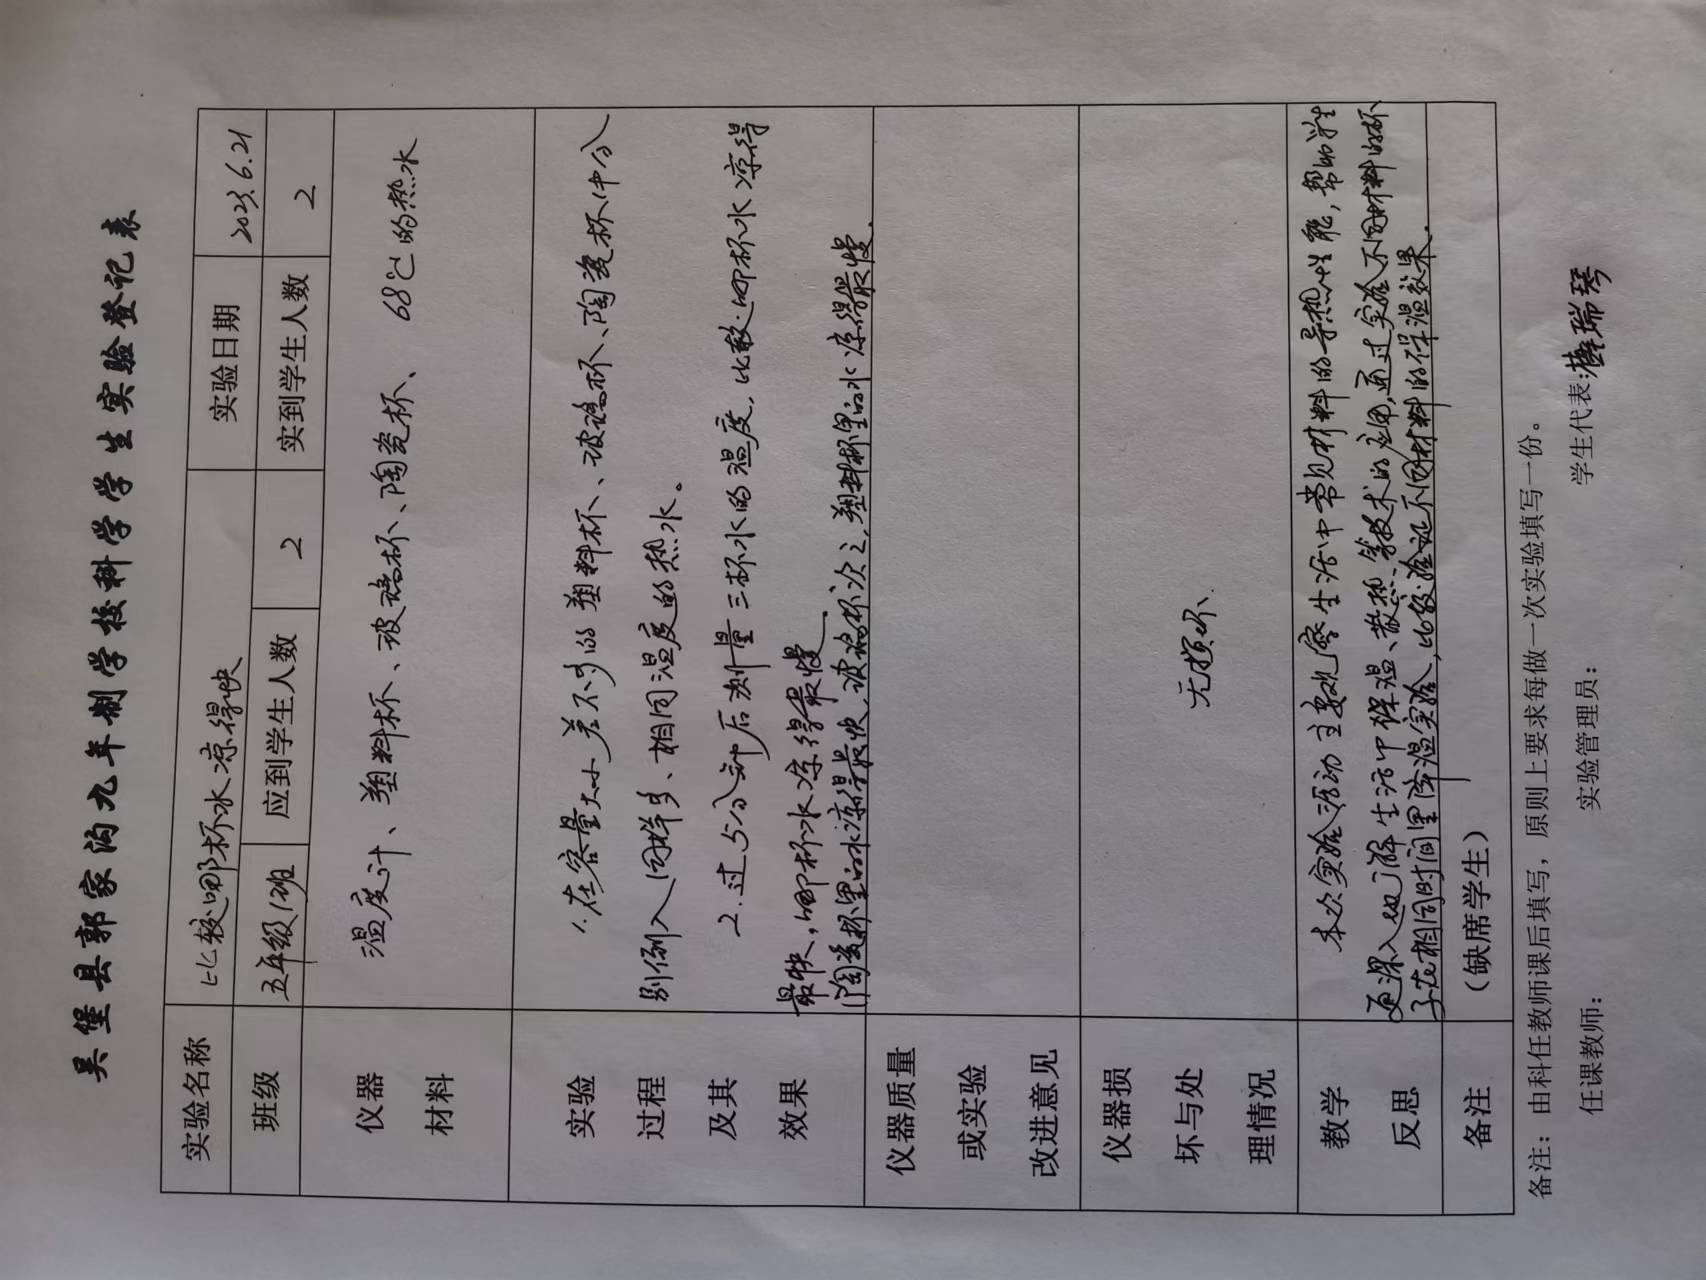 吴堡县郭家沟九年制学校科学学生实验登记表
实验名称 比较哪杯水凉得快 实验日期 2023.6.21
班级 五年级1班 应到学生人数 2 实到学生人数 2
仪器材料 温度计、塑料杯、玻璃杯、陶瓷杯、68℃的热水
实验过程及其效果
1.在容量大小差不多的塑料杯、玻璃杯、陶瓷杯中分
别倒入同样多、相同温度的热水。
2.过5分钟后测量三杯水的温度,比较哪杯水凉得
最快,哪杯水凉得最慢
(陶瓷杯里的水凉得最快,玻璃杯次之,塑料杯里的水凉得最慢.
仪器质量或实验改进意见
仪器损坏与处理情况 无损坏
教学反思
本次实验活动主要观察生活中常见材料的导热性能,帮助学生
更深入地了解生活中保温、散热等技术的应用,通过实验不同材料的杯
子在相同时间里降温实验,比较验证不同材料的保温效果.
备注 (缺席学生)
备注:由科任教师课后填写,原则上要求每做一次实验填写一份。
任课教师: 实验管理员: 学生代表:薛瑞琴